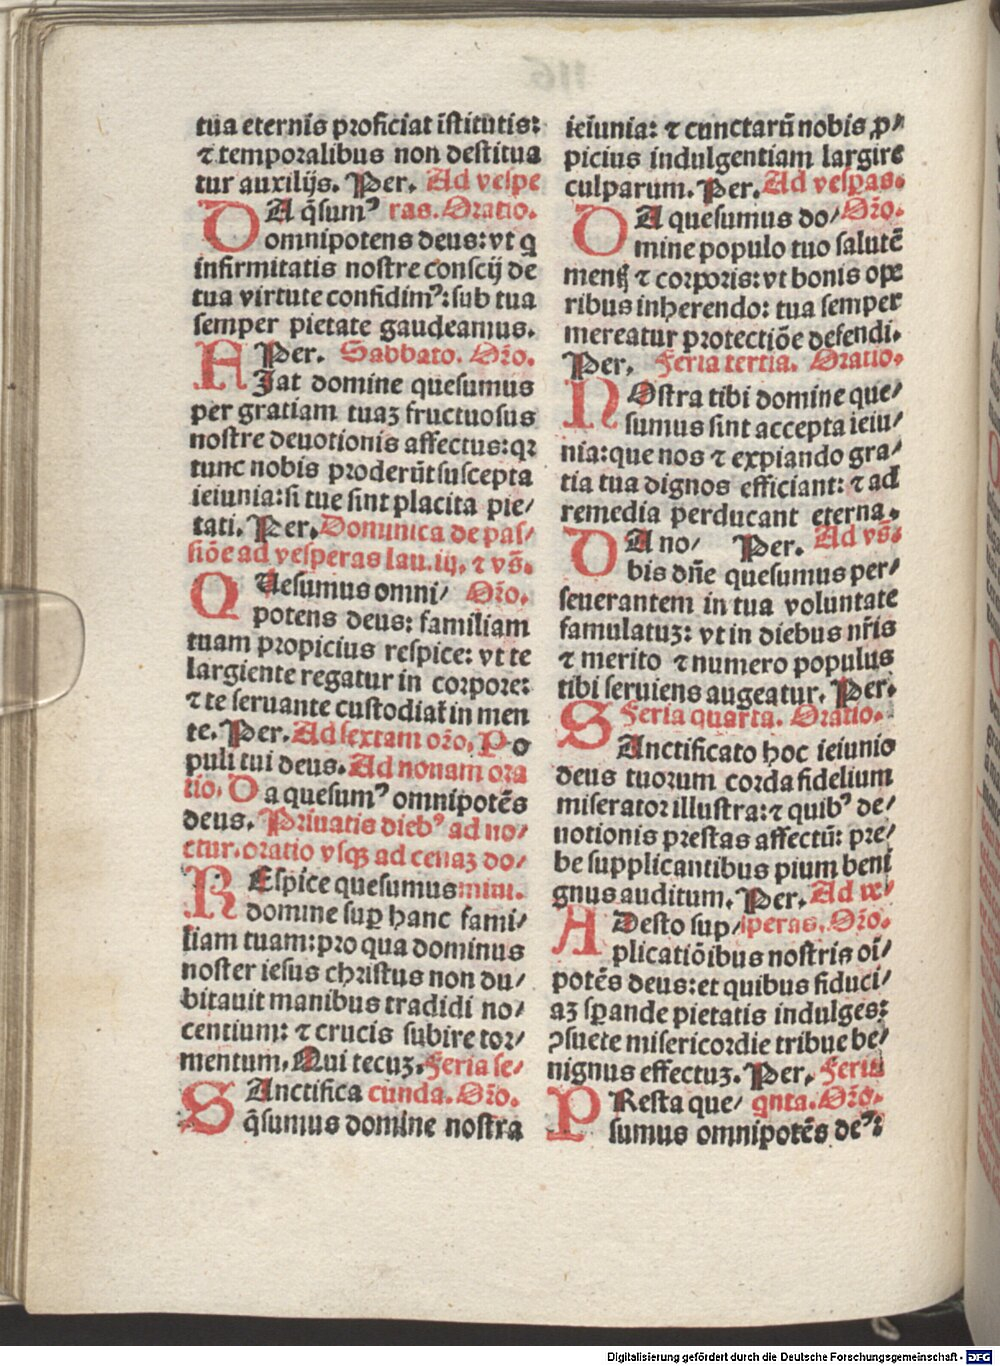 tua eternis proficiat īstitutis:
⁊ temporalibus non destitua
tur auxilijs. Per. Ad vespe
DA q̄sumꝰ ras. Oratio.
omnipotens deus: vt q
infirmitatis nostre conscij de
tua virtute confidimꝰ: sub tua
semper pietate gaudeamus.
Per. Sabbato. Or̄o.
FIat domine quesumus
per gratiam tuaꝫ fructuosus
nostre deuotionis affectus: qꝛ
tunc nobis proderūt suscepta
ieiunia: si tue sint placita pie/
tati. Per. Dominica de pas/
siōe ad vesperas lau. iij. ⁊ vs̄.
QUesumus omni/ Or̄o.
potens deus: familiam
tuam propicius respice: vt te
largiente regatur in corpore:
⁊ te seruante custodiat̄ in men
te. Per. Ad sextam or̄o. Po
puli tui deus. Ad nonam ora
tio. Da quesumꝰ omnipotēs
deus. Priuatis diebꝰ ad no/
ctur. oratio vsqꝫ ad cenaꝫ do/
REspice quesumus mini.
domine suꝑ hanc fami/
liam tuam: pro qua dominus
noster iesus christus non du/
bitauit manibus tradidi no/
centium: ⁊ crucis subire tor/
mentum. Qui tecuꝫ. Feria se/
SAnctifica cunda. Or̄o.
q̄sumus domine nostra
ieiunia: ⁊ cunctarū nobis ꝓ/
picius indulgentiam largire
culparum. Per. Ad vesperas.
DA quesumus do/ Or̄o.
mine populo tuo salutē
mentꝭ ⁊ corporis: vt bonis ope
ribus inherendo: tua semper
mereatur protectiōe defendi.
Per. Feria tertia. Oratio.
NOstra tibi domine que/
sumus sint accepta ieiu/
nia: que nos ⁊ expiando gra/
tia tua dignos efficiant: ⁊ ad
remedia perducant eterna.
DA no/ Per. Ad vs̄.
bis dn̄e quesumus per/
seuerantem in tua voluntate
famulatuꝫ: vt in diebus nr̄is
⁊ merito ⁊ numero populus
tibi seruiens augeatur. Per.
Feria quarta. Oratio.
SAnctificato hoc ieiunio
deus tuorum corda fidelium
miserator illustra: ⁊ quibꝰ de/
uotionis prestas affectū: pre/
be supplicantibus pium beni
gnus auditum. Per. Ad ve/
ADesto sup/ speras. Or̄o.
plicatiōibus nostris oī/
potēs deus: et quibus fiduci/
aꝫ sꝑande pietatis indulges:
ꝯsuete misericordie tribue be/
nignus effectuꝫ. Per. Feria
PResta que/ qnta. Or̄o.
sumus omnipotēs deꝰ:
Digitalisierung gefördert durch die Deutsche Forschungsgemeinschaft - DFG